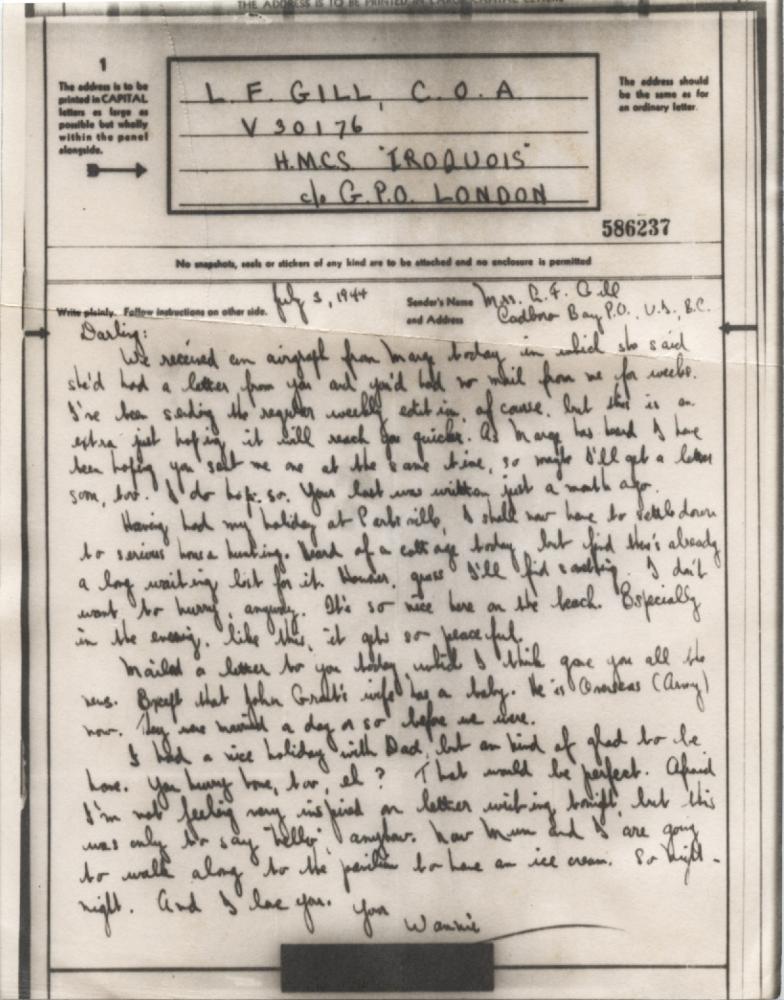 THE ADDRESS IS TO BE PRINTED IN LARGE CAPITAL LETTERS
1
The address is to be
printed in CAPITAL
letters as large as
possible but wholly
within the panel
alongside.
L. F. GILL, C.O.A
V 30176
H.M.C.S "IROQUOIS"
c/o G.P.O. LONDON
The address should
be the same as for
an ordinary letter.
586237
No snapshots, seals or stickers of any kind are to be attached and no enclosure is permitted
Write plainly. Follow instructions on other side.
July 3, 1944
Sender's Name Mrs. L. F. Gill
and Address Cadboro Bay P.O., V.I., B.C.
Darling:
We received an airgraph from Marg today in which she said
she'd had a letter from you and you'd had no mail from me for weeks.
I've been sending the regular weekly edition, of course, but this is an
extra just hoping it will reach you quicker. As Marge has heard I have
been hoping you sent me one at the same time, so maybe I'll get a letter
soon, too. I do hope so. Your last was written just a month ago.
Having had my holiday at Parksville, I shall now have to settle down
to serious house hunting. Heard of a cottage today, but find there's already
a long waiting list for it. However, guess I'll find something. I don't
want to hurry, anyway. It's so nice here on the beach. Especially
in the evening, like this, it gets so peaceful.
Mailed a letter to you today which I think gave you all the
news. Except that John Grant's wife has a baby. He is Overseas (Army)
now. They were married a day or so before we were.
I had a nice holiday with Dad, but am kind of glad to be
home. You hurry home, too, eh? That would be perfect. Afraid
I'm not feeling very inspired on letter writing, tonight, but this
was only to say "hello", anyhow. Now Mum and I are going
to walk along to the pavilion to have an ice cream. So night-
night. And I love you. Your
Wannie